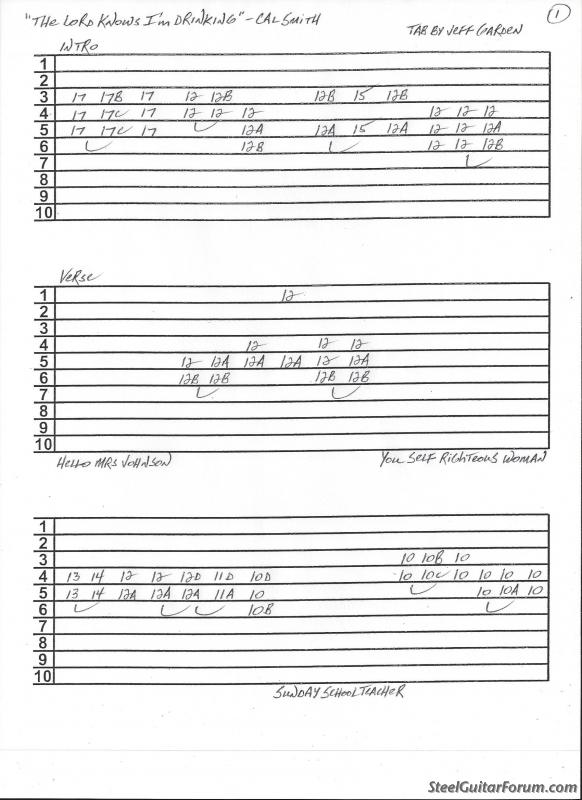 "The Lord Knows I'm Drinking" - Cal Smith
1
Tab by Jeff Garden
Intro
1
2
3 17 17B 17 12 12B 12B 15 12B
4 17 17C 17 12 12 12 12 12 12
5 17 17C 17 12A 12A 15 12A 12 12 12A
6 12B 12 12 12B
7
8
9
10
Verse
1 12
2
3
4 12 12 12
5 12 12A 12A 12A 12 12A
6 12B 12B 12B 12B
7
8
9
10
Hello Mrs Johnson You Self Righteous Woman
1
2
3 10 10B 10
4 13 14 12 12 12D 11D 10D 10 10C 10 10 10 10
5 13 14 12A 12A 12A 11A 10 10 10A 10
6 10B
7
8
9
10
Sunday School Teacher
SteelGuitarForum.com